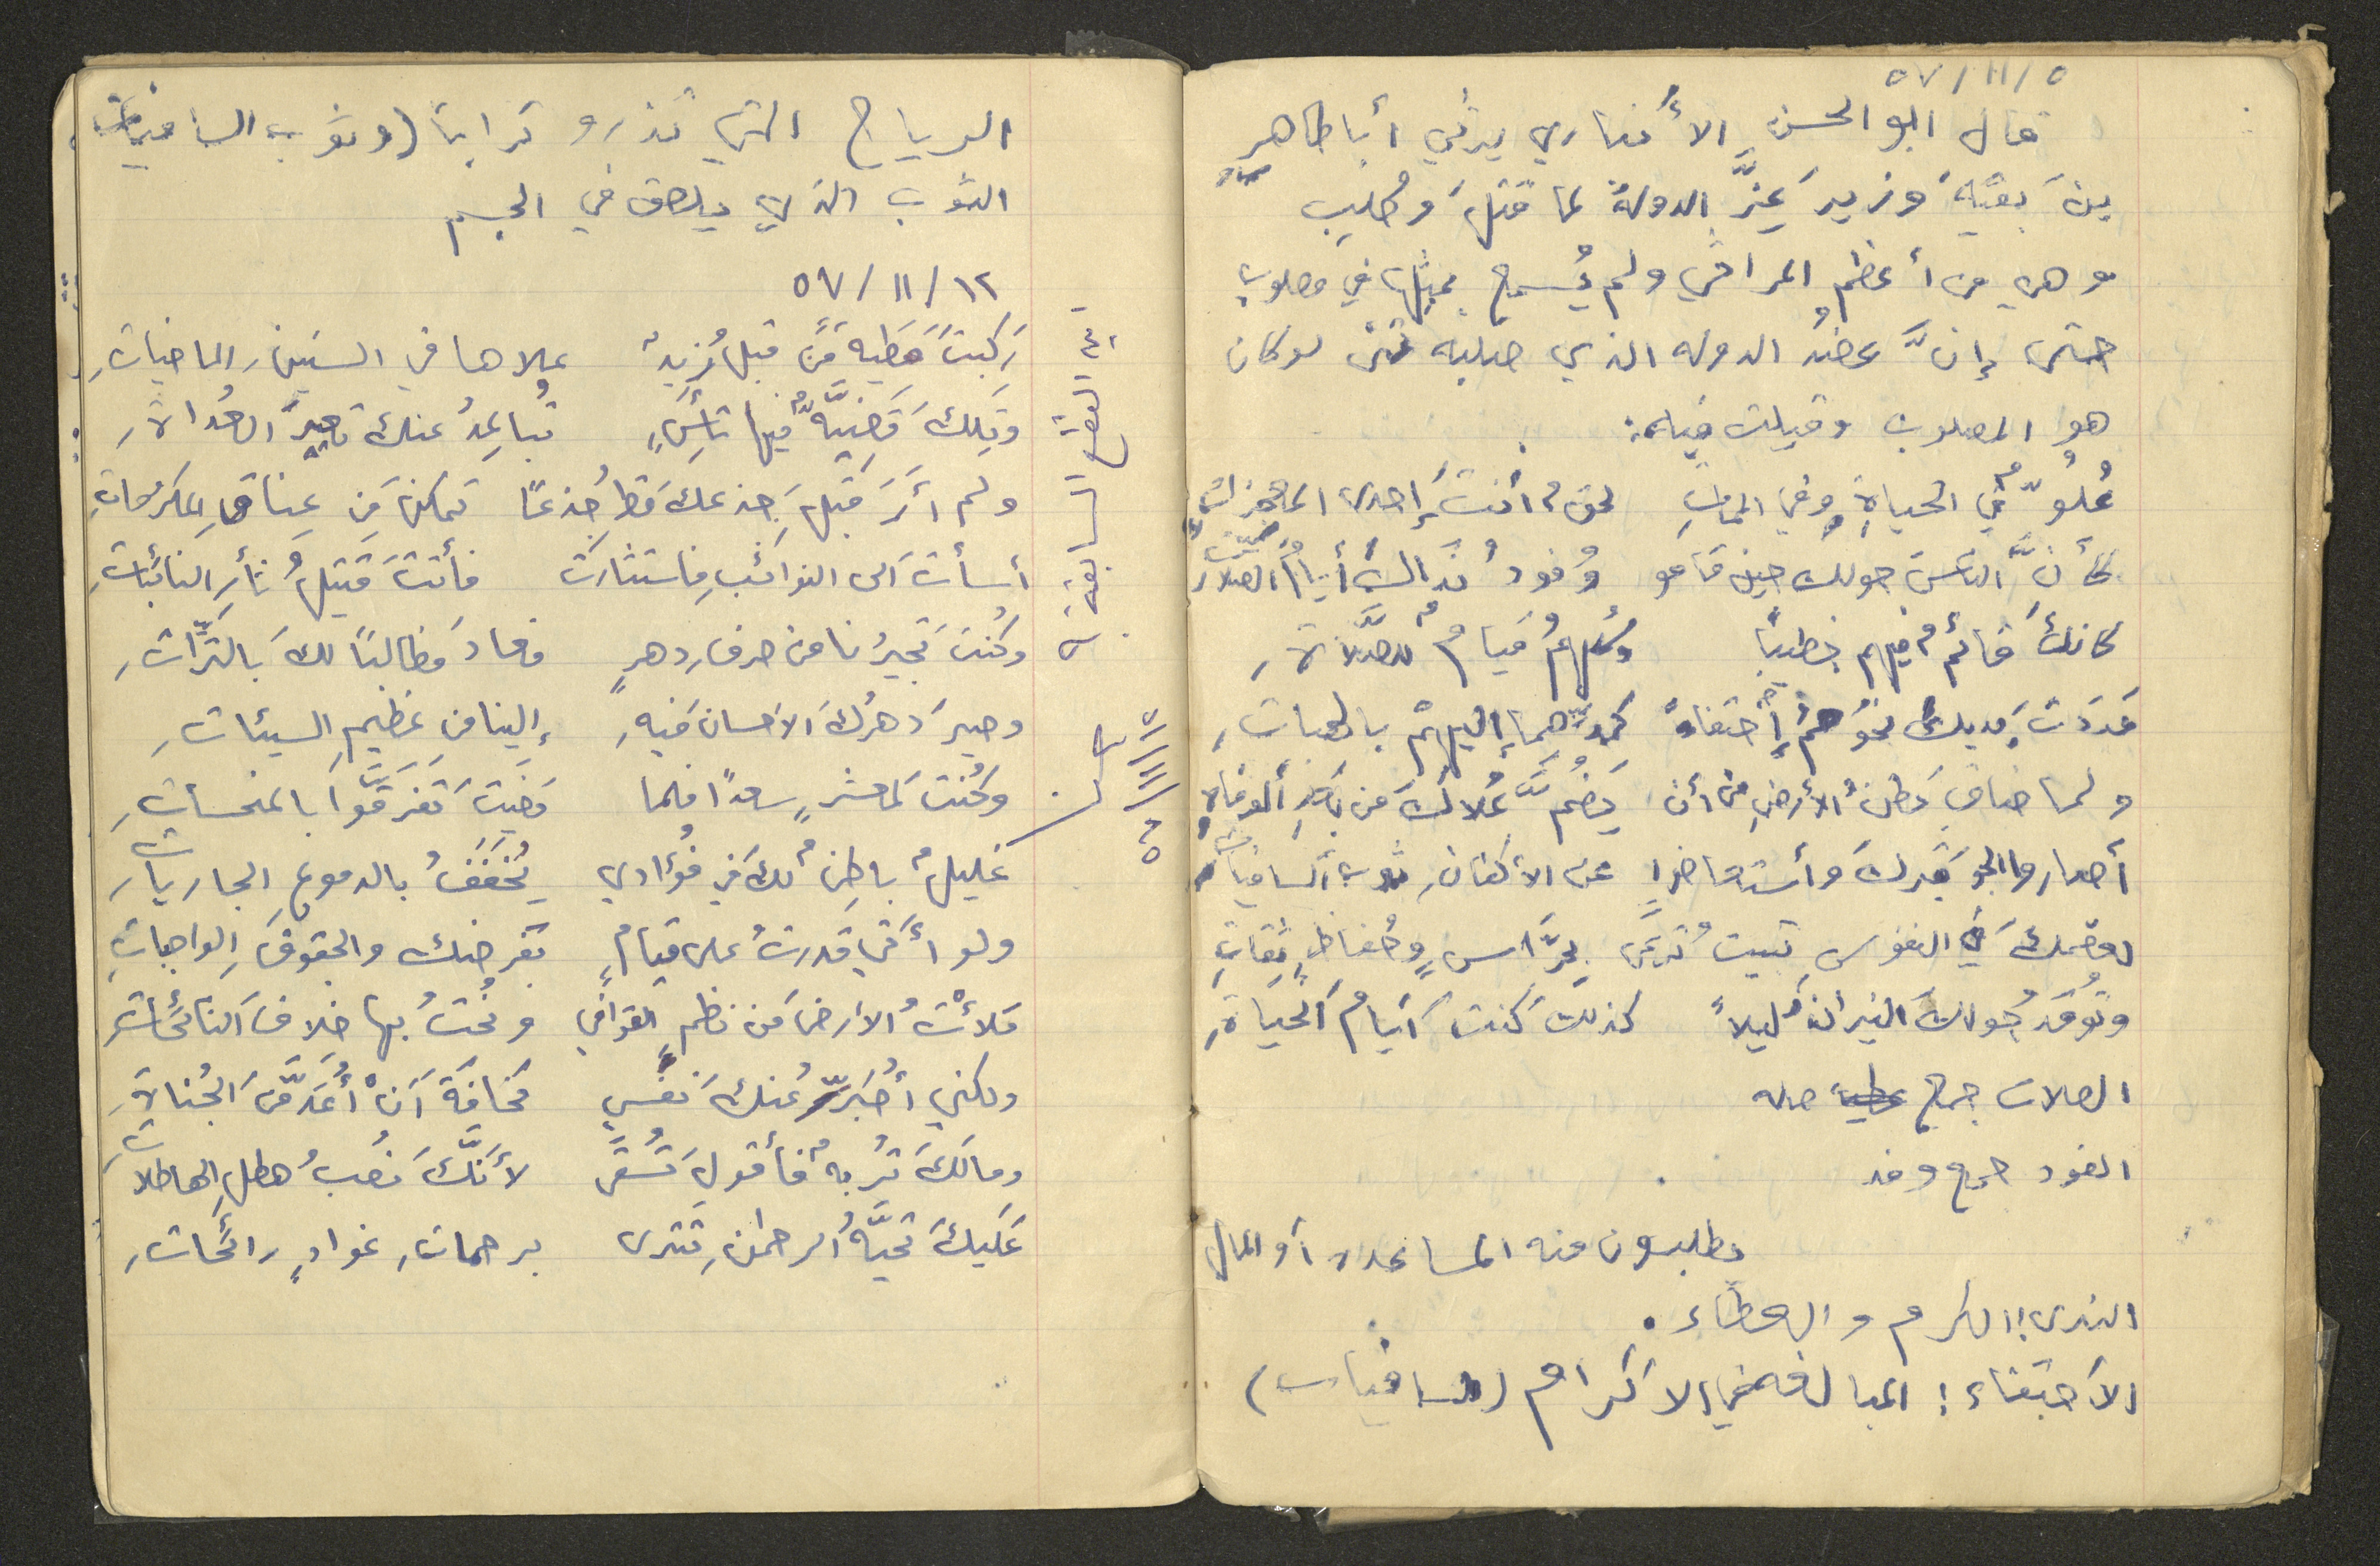 ٥٧/١١/٥
قال ابو الحسن الأنباري يرثي أبا طاهر
بن بقيه وزير عز الدولة لما قتل وصلب
وهي من أعظم المراثي ولم يُسمع بمثلها في مصلوب
حتى إنّ عضد الدوله الذي صلبه تمنى لو كان
هو المصلوب وقيلت فيه:
عُلوٌّ في الحياةِ وفي المماتِ لحقٌ أنت إحدى المعجزات
كأنّ الناسَ حولك حين قامو وُفودُ نداك أيامُ الصلاتِ
كانك قائمٌ فيهم خطيبًا وكلهمُ قيامٌ للصَّلاةِ
مددت يديك نحوهمُ إحتفاءً كمدّهما إليهمْ بالهباتِ
ولما ضاق بطنُ الأرضِ من أن يضمَّ عُلاك من بعدِ الوفاةِ
أصاروا الجو قبرك وأستعاضوا عن الأكفانِ ثوب السافيات
لعظمك في النفوسِ تبيتُ تُرعى بحرَّاسٍ وحُفاظٍ ثقاتِ
وتوقد حولك النيران ليلاً كذلك كنت أيامُ الحياةِ
الصلات جمع صله
الفود جمع وفد
يطلبون منه المساعده أو المال
الندى: الكرم والعطاء.
الأحتفاء: المبالغه في الاكرام (السافيات)
الرياح التي تذرو ترابا (وثوب السافيات
الثوب الذي يلصق في الجسم
٥٧/١١/١٢
رَكبتَ مَطيةً مَن قبلُ زيدٌ علاها في السنينِ الماضياتِ
وتلك قضيَّةٌ فيها تأسٍّ تباعدُ عنك تعييرَ العُداةِ
ولم أَرَ قبلَ جذعك قط جُذعًا تمكن مَن عناقِ المكرُماتِ
أسأت الى النوائبِ فاستثارت فأنت قتيلُ ثأرِ النائباتِ
وكُنتَ تجيرُنا من صرفِ دهرٍ فعادَ مطالبًا لكَ بالتِّراتِ
وصيرَ دهرُك الاحسان فيهِ إلينا من عظيمِ السيئاتِ
وكُنت لمعشرٍ سعدًا فلما مَضيتَ تفرَّقوا بالمنحساتِ
غليلٌ باطنٌ لك في فؤادي يُخففُ بالدموعِ الجارياتِ
ولو أني قدرتُ على قيامٍ بفرضك والحقوقِ الواجباتِ
ملأتُ الأرضَ من نظمِ القوافي ونُحتُ بها خلاف النائحات
ولكني أُصَبّرُ عنك نفسي مخافةَ أنْ أُعَدَّ من الجُناةِ
ومالكَ تُربةٌ فأقولَ تُسقى لأنَّك نصبُ هطلِ الهاطلاتِ
عليك تحيَّةُ الرحمن تترى برحماتٍ غوادٍ رائحاتِ
القصة السابقة